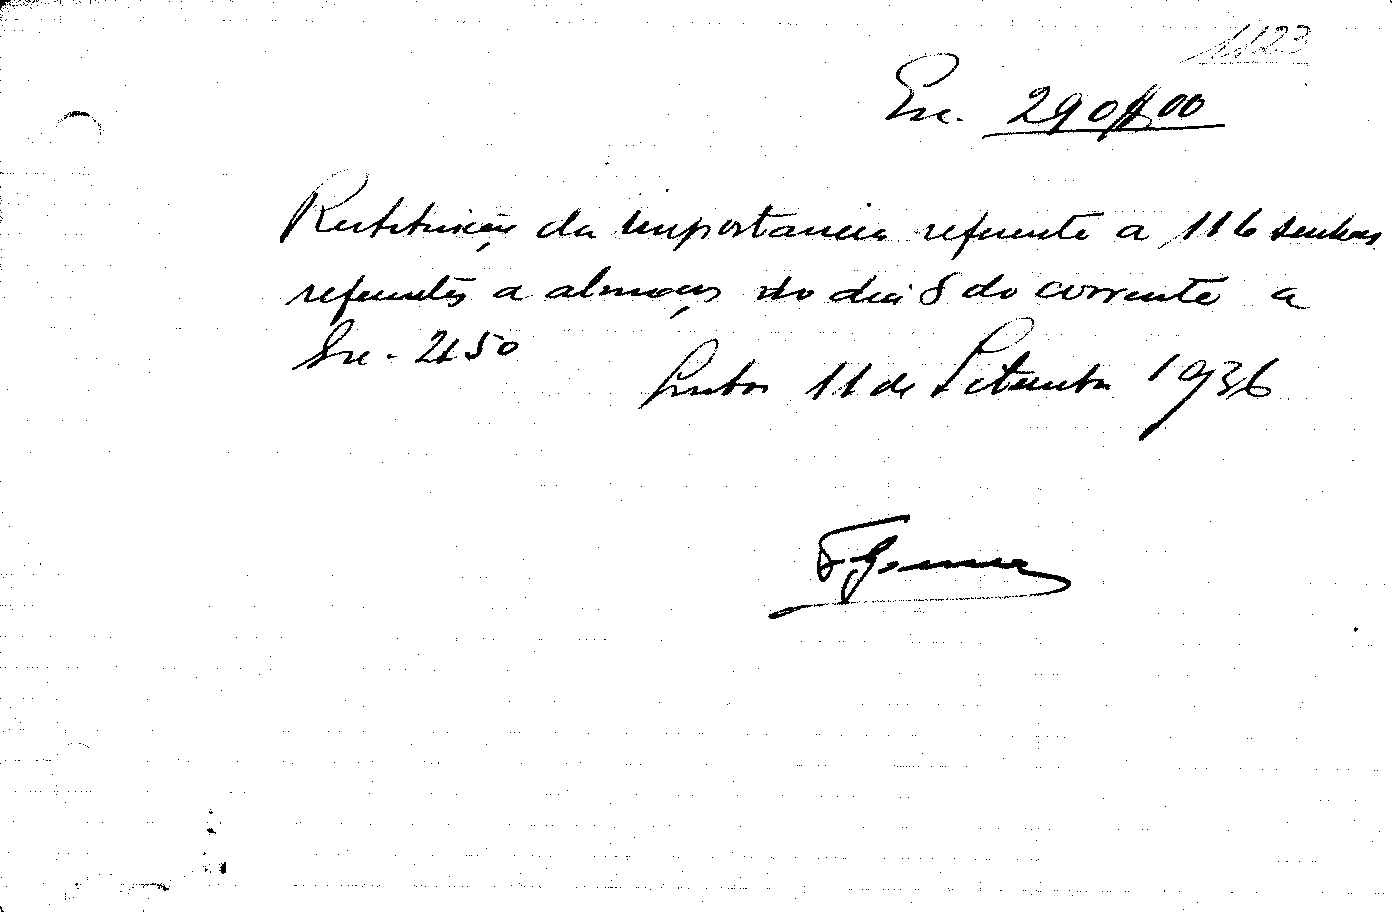 1123
Esc. 290$00
Restituição da importancia referente a 116 senhas
referentes a almoços do dia 8 do corrente a
Esc. 2$50
Lisboa 11 de Setembro 1936